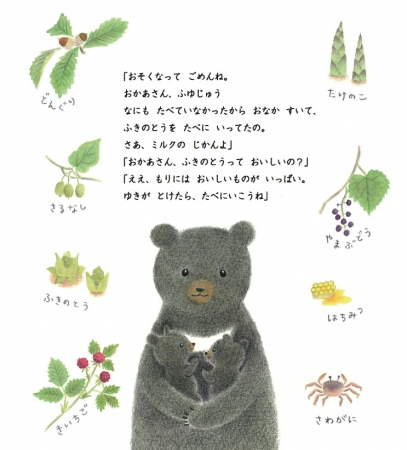 「おそくなって ごめんね。
おかあさん、ふゆじゅう
なにも たべていなかったから おなか すいて、
ふきのとうを たべに いってたの。
さあ、ミルクの じかんよ」
「おかあさん、ふきのとうって おいしいの？」
「ええ、もりには おいしいものが いっぱい。
ゆきが とけたら、たべにいこうね」
どんぐり
さるなし
ふきのとう
きいちご
たけのこ
やまぶどう
はちみつ
さわがに